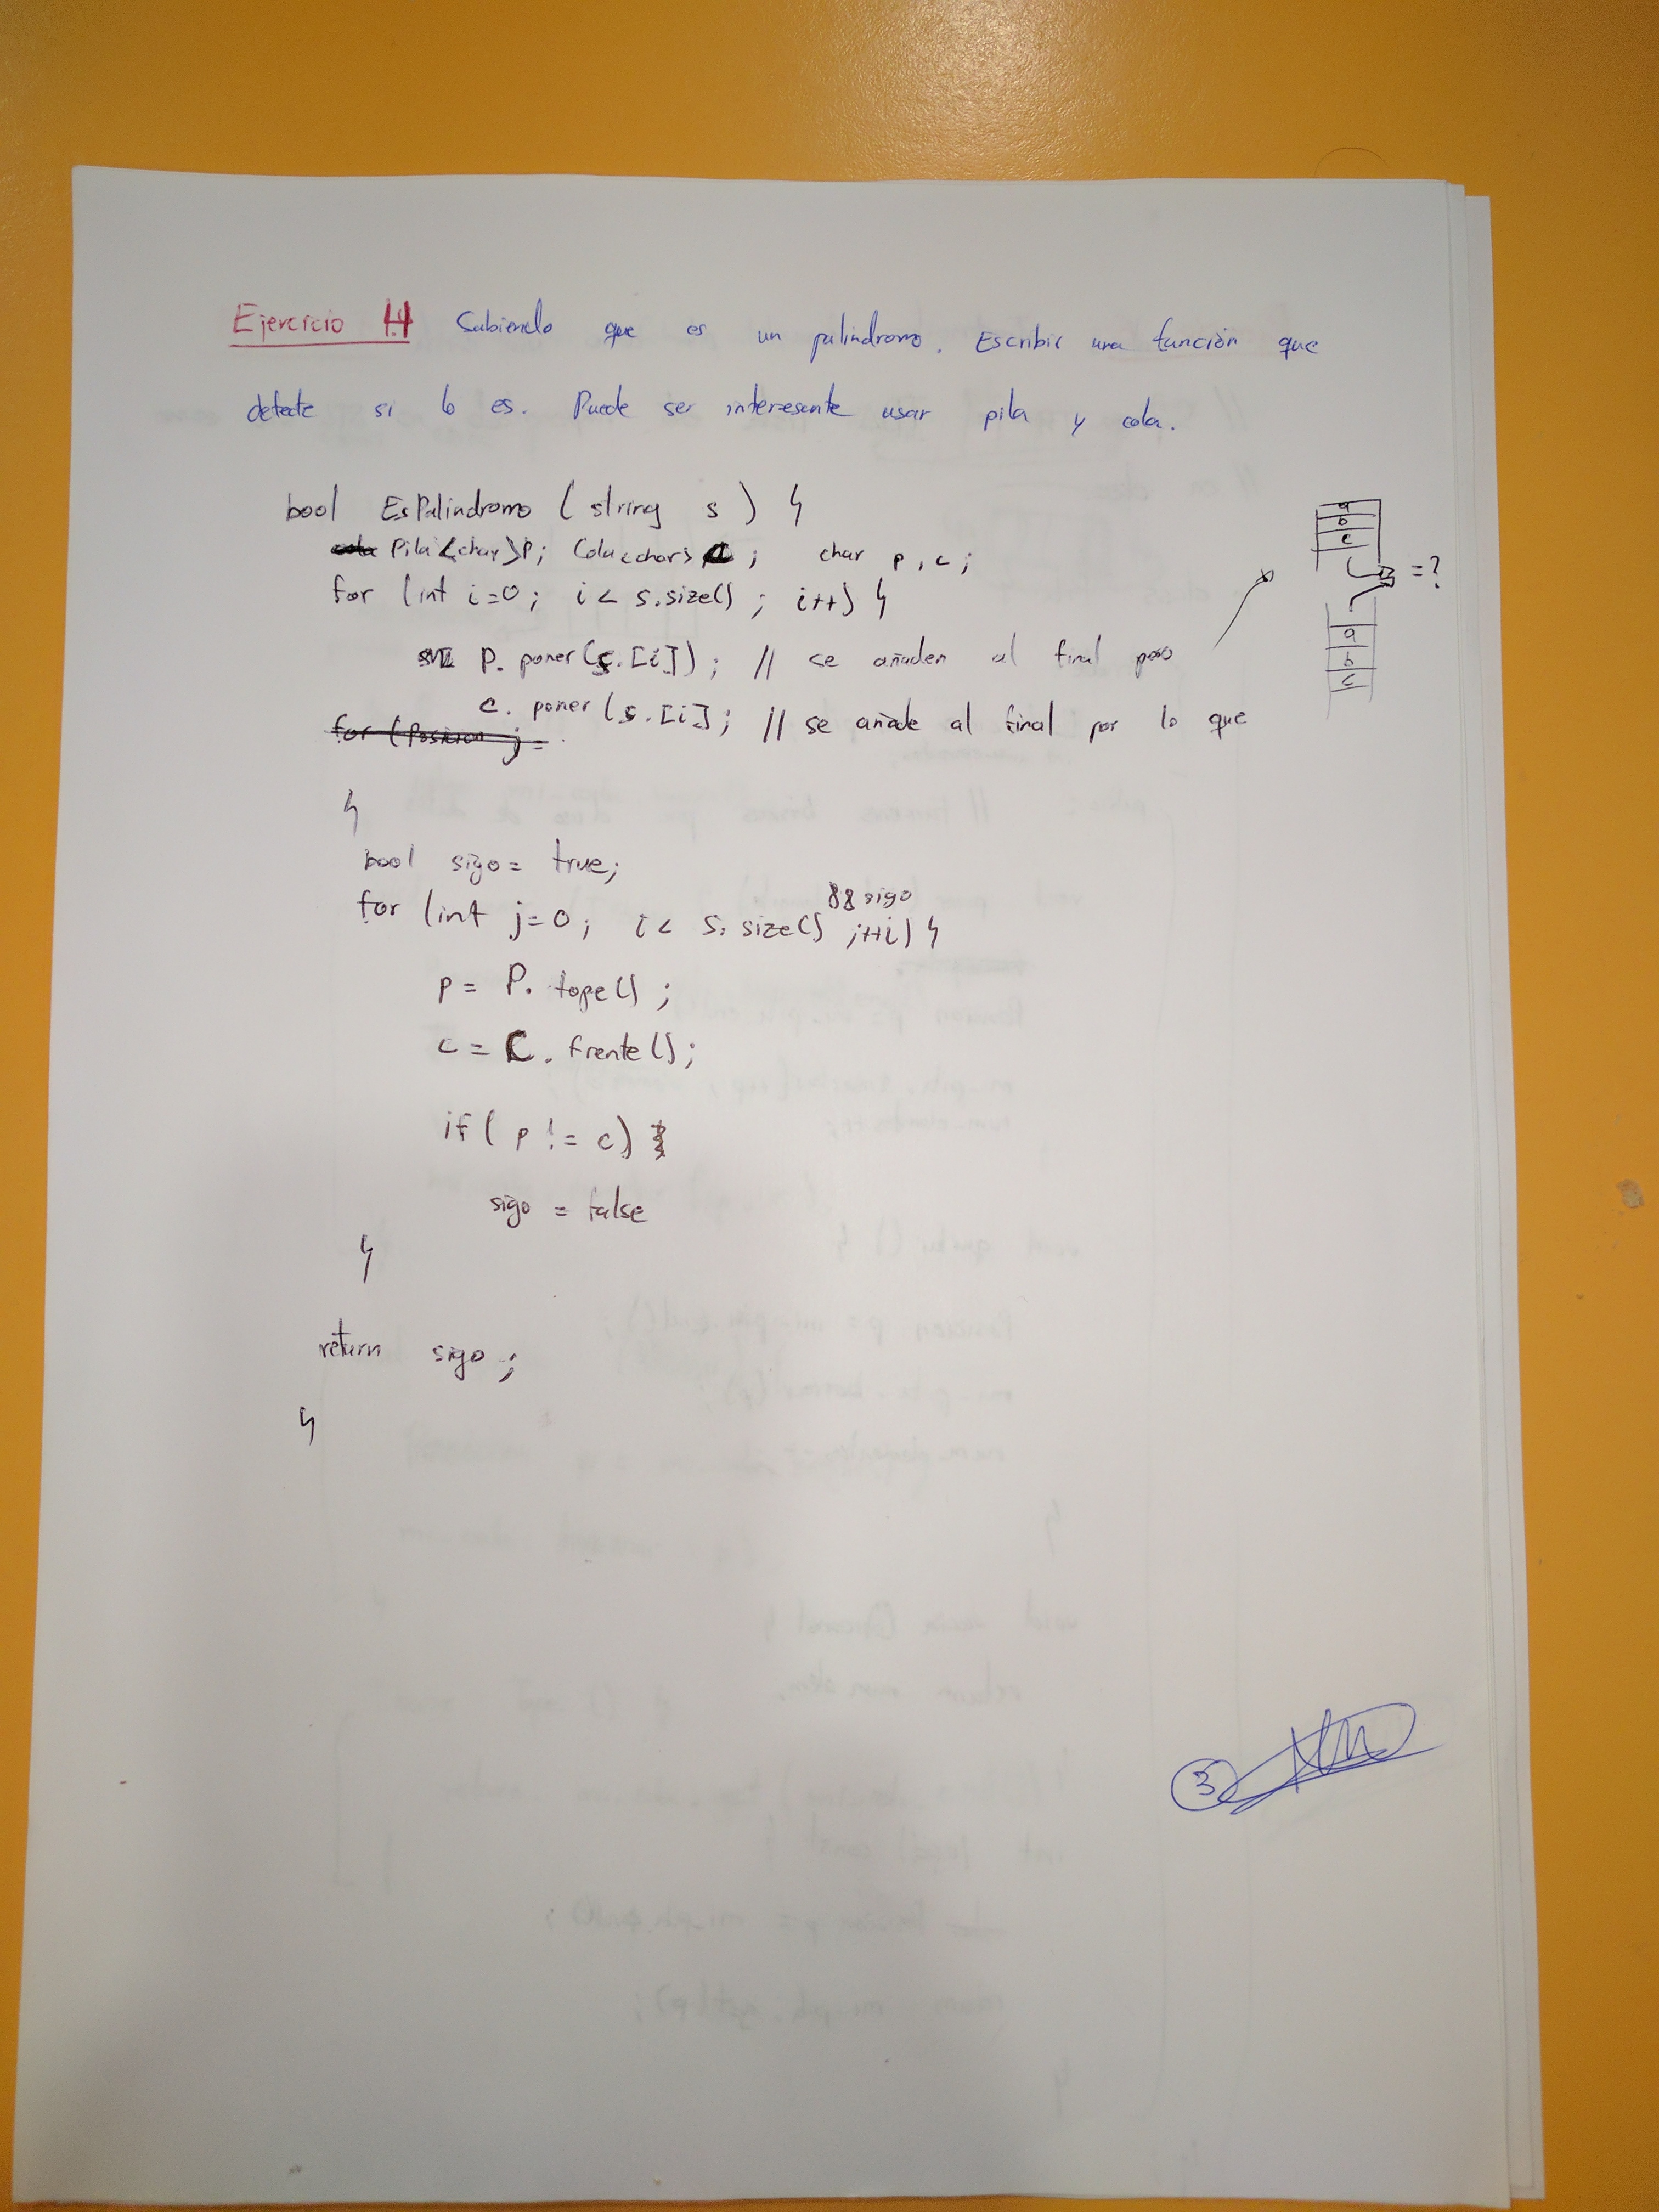 Ejercicio 14 Sabiendo que es un palindromo. Escribir una función que
detecte si lo es. Puede ser interesante usar pila y cola.
bool EsPalindromo (string s) {
Pila<char>P; Cola<char> C; char p, c;
for (int i=0; i < s.size() ; i++) {
P. poner(s.[i]); // se añaden al final pero
c. poner (s.[i]; // se añade al final por lo que
for (Posicion j =
}
bool sigo = true;
&& sigo
for (int j=0; i < s. size() ;++i) {
p = P. tope() ;
c = C. frente();
if ( p != c)
sigo = false
}
return sigo ;
}
a
b
c
= ?
a
b
c
3